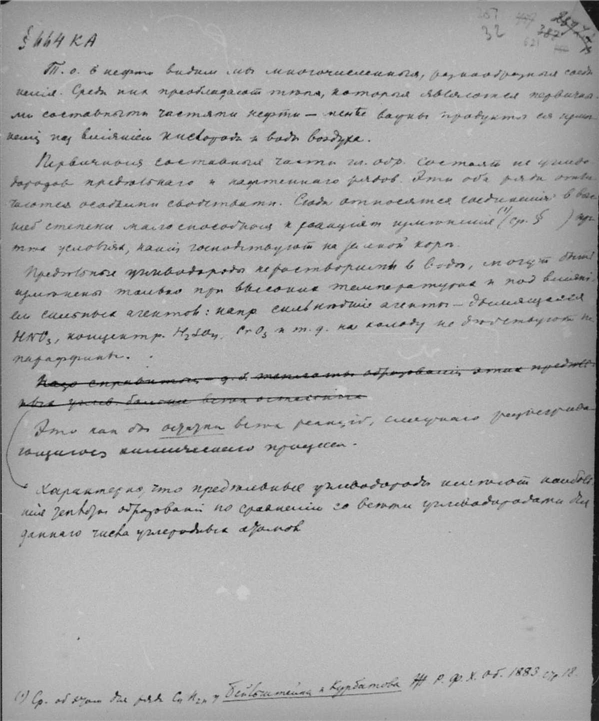 § 664 КА
32
Т. о. в нефти видим мы многочисленныя, разнообразныя соеди
ненія. Среди них преобладают тела, которыя являются первична
ми составными частями нефти — менее важны продукты ея изме
неній под вліянием кислорода и воды воздуха.
Первичныя составныя части гл. обр. состоят из углево
дородов предельнаго и нафтеннаго рядов. Эти оба ряда отли
чаются особыми свойствами. Сюда относятся соединенія в выс
шей степени малоспособныя к реакціям измененія (¹) (ср. § ) при
тех условіях, какія господствуют на земной коре.
Предельные углеводороды нерастворимы в воде, могут быть
изменены только при высоких температурах и под вліяні
ем сильных агентов: напр. сильнейшіе агенты — дымящаяся
HNO₃, концентр. H₂SO₄, CrO₃ и т. д. на холоду не действуют на
парафины.
Надо справиться – д. б. теплота образованія этих предель
ных углев. больше всех остальных
Это как бы осадки всех реакцій, связующаго
химическаго процесса.
Характерно, что предельные углеводороды имеют наиболь
шія теплоты образованія по сравненію со всеми углеводородами для
даннаго числа углеродных атомов
(¹) Ср. об этом для ряда CₙH₂ₙ у Бейльштейна и Курбатова Ж Р. Фх Х. Об. 1883. стр 18.